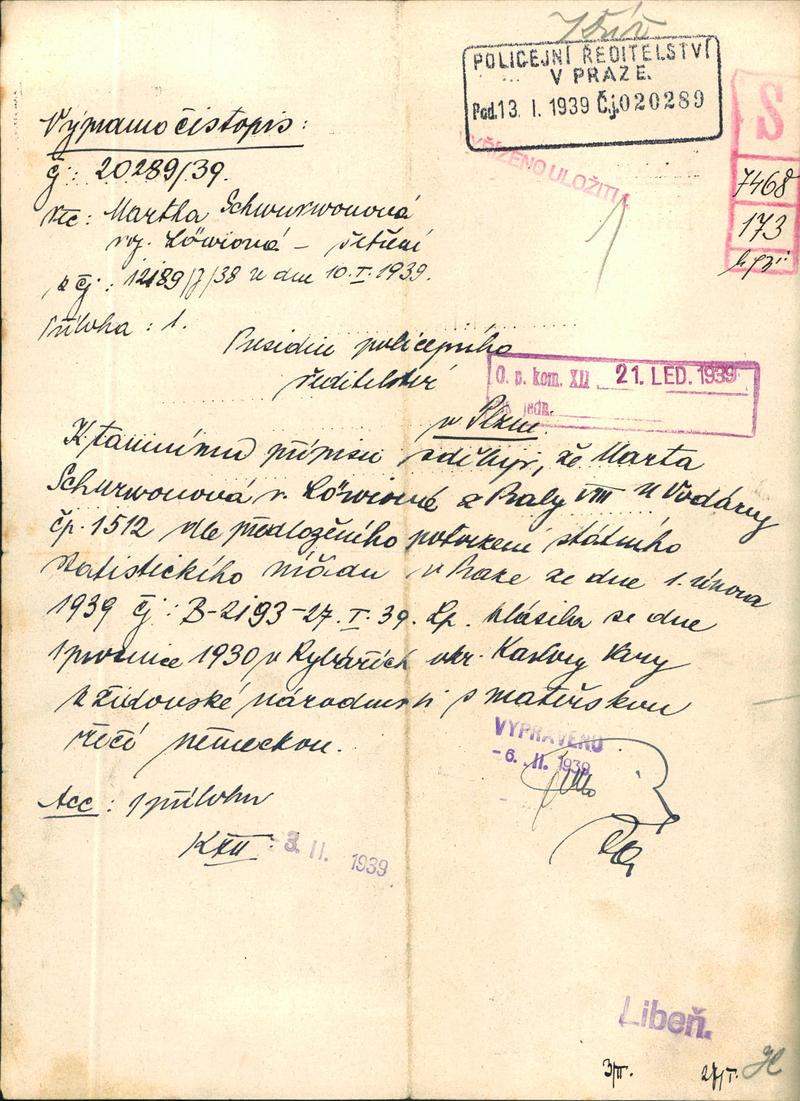 POLICEJNÍ ŘEDITELSTVÍ
V PRAZE.
Pod. 13. I. 1939 Č.j. 020289
VYŘÍZENO ULOŽITI
S
7468
173
Výpravno čistopis:
čj: 20289/39.
Věc: Martha Schwurwonová
roz. Löwiová – šetření
k čj: 12189/J/38 ze dne 10.I.1939.
Příloha: 1.
Presidiu policejního
ředitelství
O. p. kom. XII 21. LED. 1939
jedn.
v Plzni.
K tamnímu přípisu sděluji, že Marta
Schurwonová r. Löwiová z Prahy VIII U Vodárny
čp. 1512 dle předloženého potvrzení státního
statistického úřadu v Praze ze dne 1. února
1939 čj: B-2193-27.I.39. hlásila se dne
1 prosince 1930 v Rybářích okr. Karlovy Vary
k židovské národnosti s mateřskou
řečí německou.
VYPRAVENO
-6. II. 1939
Acc: 1 příloha
K XII 3. II. 1939
Libeň.
3/II. 27/I.